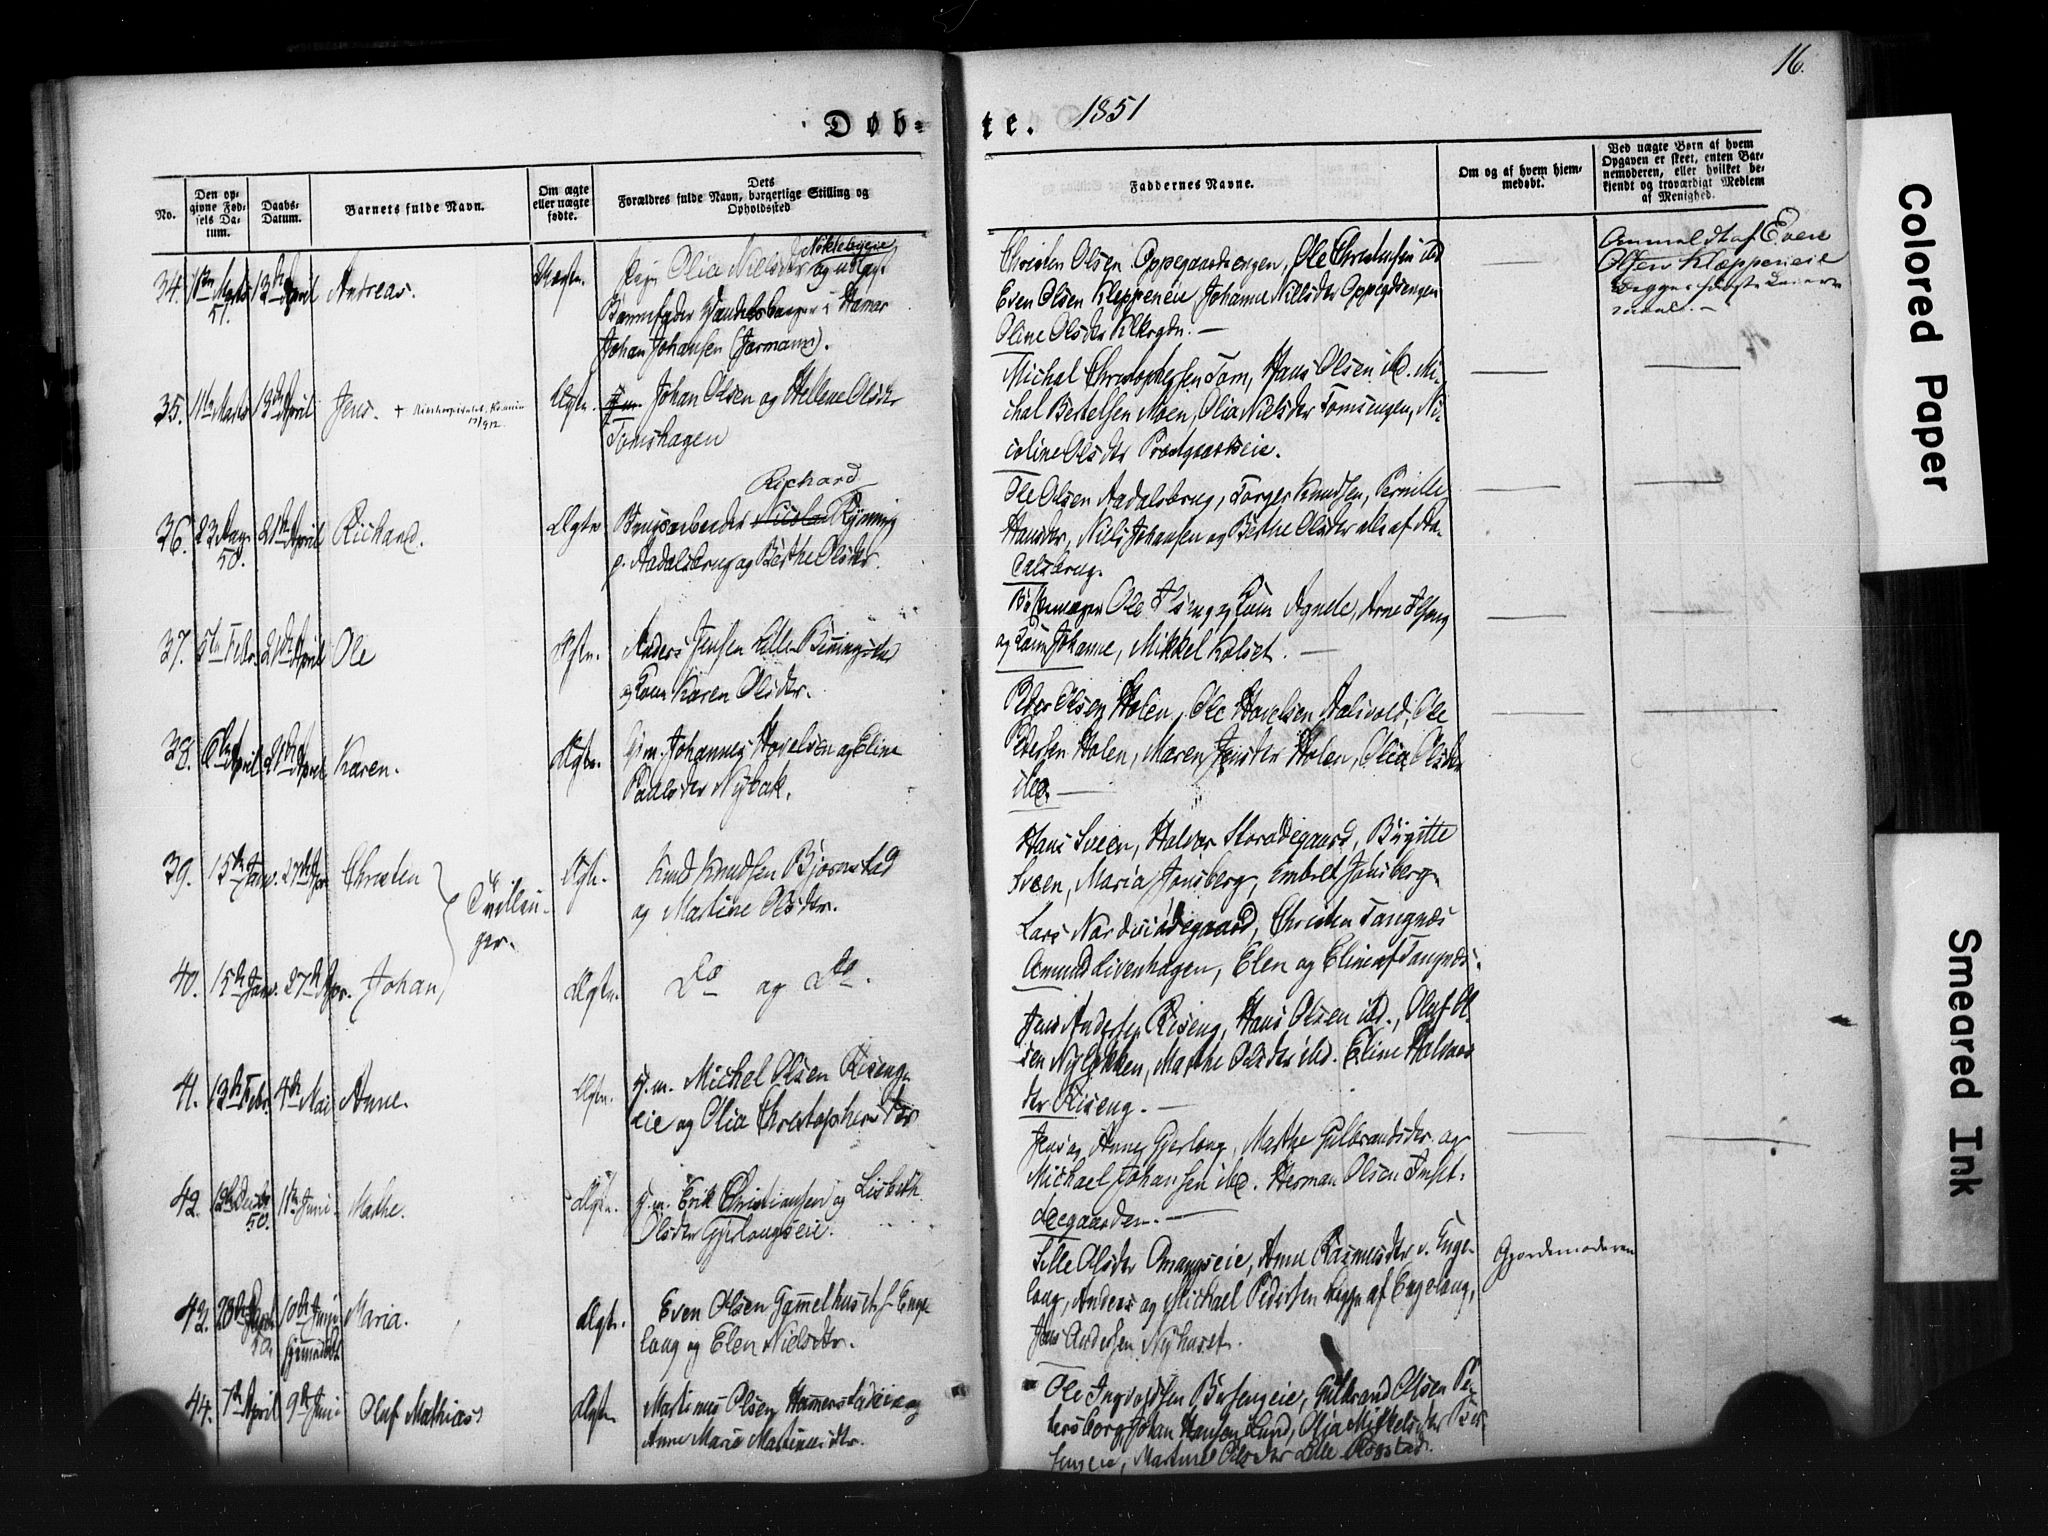 16.
Døb-
te. 1851
No.
Den op-
givne Fød-
sels Da-
tum.
Daabs-
Datum.
Barnets fulde Navn.
Om ægte
eller uægte
fødte.
Dets
Forældres fulde Navn, borgerlige Stilling og
Opholdssted
Faddernes Navne.
Om og af hvem hjem-
medøbt.
Ved uægte Børn af hvem
Opgaven er skeet, enten Bar-
nemoderen, eller hvilket be-
kjendt og troværdigt Medlem
af Menighed.
34. Marts 51. 13de April Andreas. Uægte.
Pige Olia Nielsdtr og udlagt
Barnefader Handelsborger i Hamar
Johan Johansen (Jormann).
Christen Olsen Oppegaardsengen, Ole Christensen ibd
Even Olsen Kleppeneie, Johanne Nilsdtr
Oline Olsdtr
Anmeldt af Even
Olsen Kleppeneie
35. 11te Marts 13de April Jens. Ægte.
Johan Olsen og Hellene Olsdtr
Tomshagen
Michal Christophersen Torn, Hans Olsen ibd. Mi-
chal Bertelsen Moen, Olia Nielsdtr Tomsengen, Ni-
coline Olsdtr Præstgaardseie.
36. 23 Aug. 50. 21de April Richard. Ægte
Richard
Brugsarbeider Rynning
p. Aadalsbrug og Berthe Olsdtr.
Ole Olsen Aadalsbrug, Torger Knudsen, Pernille
Hansdtr, Niels Johansen og Berthe Olsdtr alle af Aa-
dalsbrug.
37. 5te Febr. 21de April Ole Ægte.
Anders Jensen Lille
og Kone Karen Olsdtr.
Ole og Kone Agnete, Arne
og Kone Johanne, Mikkel Kolset.
38. April 21de April Karen. Ægte.
Gm. Johannes Hovelsen og Eline
Paulsdtr Nybak.
Peder Olsen Holen, Ole Hovelsen Aalsvold, Ole
Pedersen Holen, Maren Jensdtr Holen, Olia Olsdtr
ibd.
39. 15de Janv. 27de Apr. Christen Ægte.
Tvillin-
ger.
Knud Knudsen Bjørnstad
og Martine Olsdtr.
Hans Sveen, Halvor Storødegaard, Birgitte
Sveen, Maria Jønsberg, Embret Jønsberg.
40. 15de Janv. 27de Apr. Johan, Ægte.
Do og Do.
Lars Nordviødegaard, Christen Tangnæs
Amund Livenhagen, Elen og Eline af Tangnæs.
41. 13de Febr. 4de Mai Anne. Ægte.
G.m. Michel Olsen Riseng-
eie og Olia Christophersdtr
Jens Andersen Riseng, Hans Olsen ibd., Oluf Ol-
sen Nyløkken, Marthe Olsdtr ibd. Eline Halvors
dtr Riseng.
42. Decbr 50. 11te Juni Mathe. Ægte.
G.m. Erik Christiansen og Lisbeth
Olsdtr Gjerlougseie.
Jens og Anne Gjerloug, Marthe Gulbrandsdtr og
Michael Johansen ibd. Herman Olsen
degaarden.
43. 50. Juni Maria. Ægte.
Even Olsen Gammelhuset
loug og Elen Nielsdtr.
Sille Olsdtr Anne Rasmusdtr v. Enge-
loug, Anders og Michael Pedersen begge af Engeloug,
Jens Andersen Nyhuset.
Gjordemoderen
44. 7de April 9de Juni Oluf Mathias Ægte
Martinus Olsen Hamerstadeie og
Anne Marie Martinusdtr.
Ole Ingvoldsen Børsengeie, Gulbrand Olsen Pe-
tersborg, Johan Hansen Lund, Olia Mikkelsdtr
Martine Olsdtr Lille Rogstad.
Colored Paper
Smeared Ink